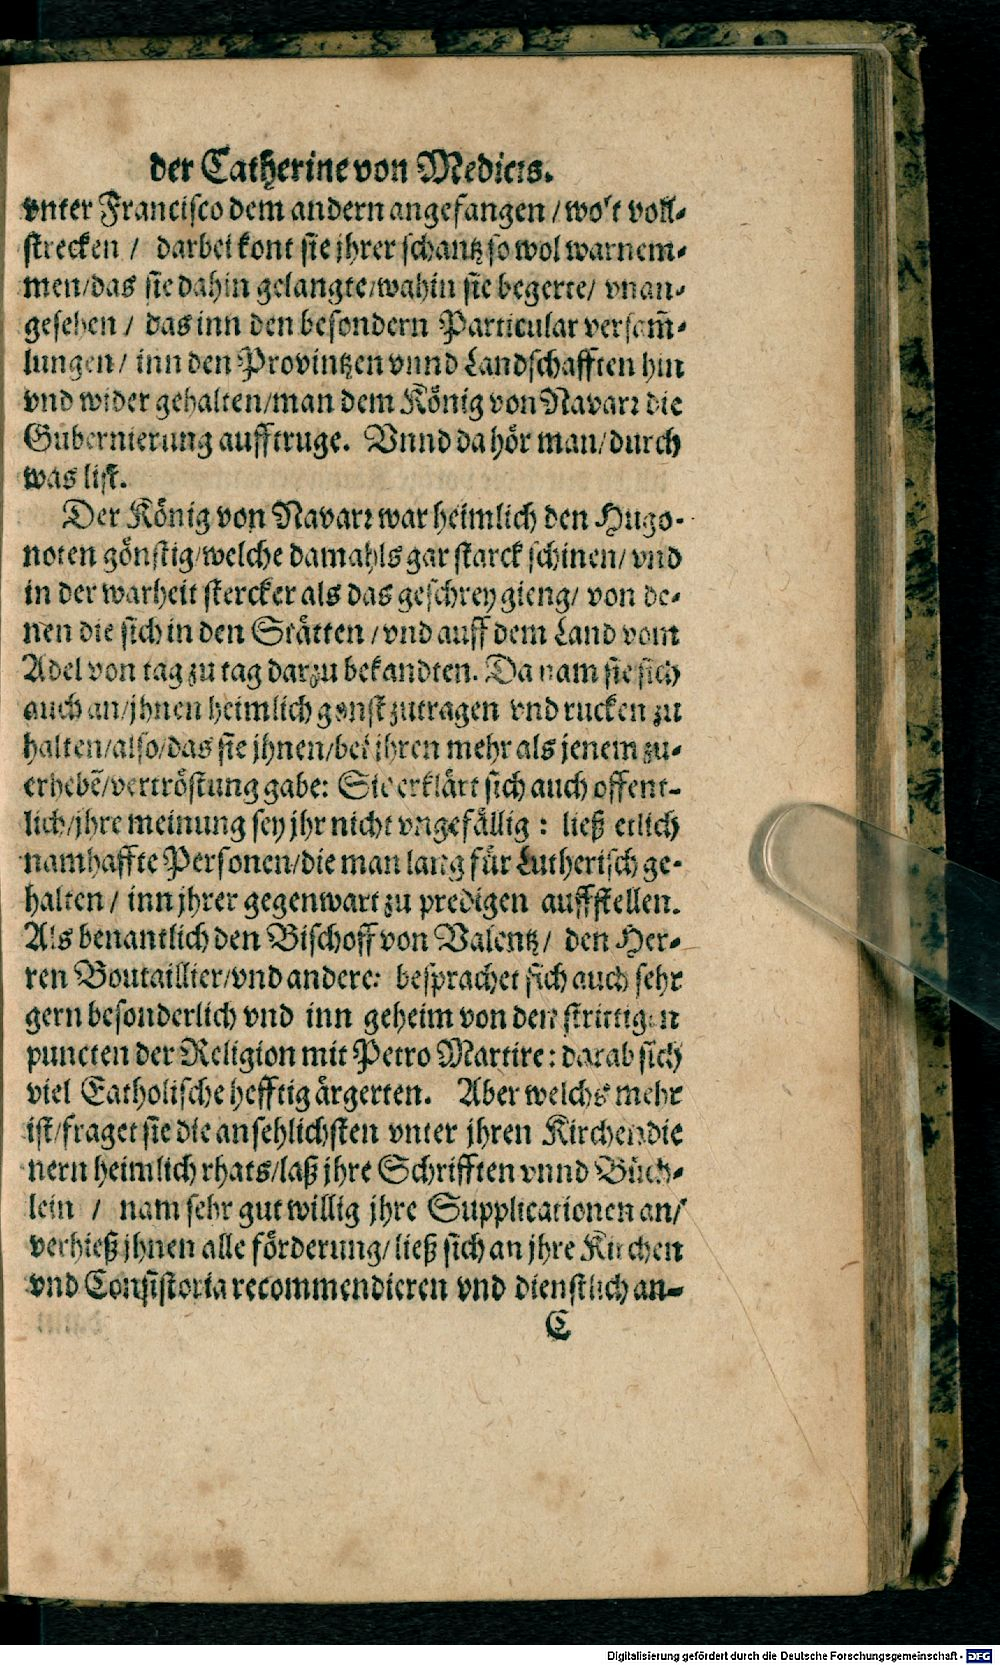 der Catherine von Medicis.
vnter Francisco dem andern angefangen / wolt voll-
strecken / darbei kont sie jhrer schantz so wol warnem-
men/das sie dahin gelangte/wahin sie begerte/ vnan-
gesehen / das inn den besondern Particular versam̃-
lungen/ inn den Provintzen vnnd Landschafften hin
vnd wider gehalten/man dem König von Navarꝛ die
Gubernierung aufftruge. Vnnd da hör man/durch
was list.
Der König von Navarꝛ war heimlich den Hugo-
noten gönstig/welche damahls gar starck schinen/ vnd
in der warheit stercker als das geschrey gieng/ von de-
nen die sich in den Stätten /vnd auff dem Land vom
Adel von tag zu tag darzu bekandten. Da nam sie sich
auch an/jhnen heimlich gonst zutragen vnd rucken zu
halten/also/das sie jhnen/bei jhren mehr als jenem zu-
erhebẽ/vertröstung gabe: Sie erklärt sich auch offent-
lich/jhre meinung sey jhr nicht vngefällig : ließ etlich
namhaffte Personen/die man lang für Lutherisch ge-
halten / inn jhrer gegenwart zu predigen auffstellen.
Als benantlich den Bischoff von Valentz/ den Her-
ren Boutaillier/vnd andere: besprachet sich auch sehr
gern besonderlich vnd inn geheim von den strittigen
puncten der Religion mit Petro Martire: darab sich
viel Catholische hefftig ärgerten. Aber welchs mehr
ist/fraget sie die ansehlichsten vnter jhren Kirchendie
nern heimlich rhats/laß jhre Schrifften vnnd Büch-
lein / nam sehr gutwillig jhre Supplicationen an/
verhieß jhnen alle förderung/ließ sich an jhre Kirchen
vnd Consistoria recommendieren vnd dienstlich an-
C
Digitalisierung gefördert durch die Deutsche Forschungsgemeinschaft - DFG